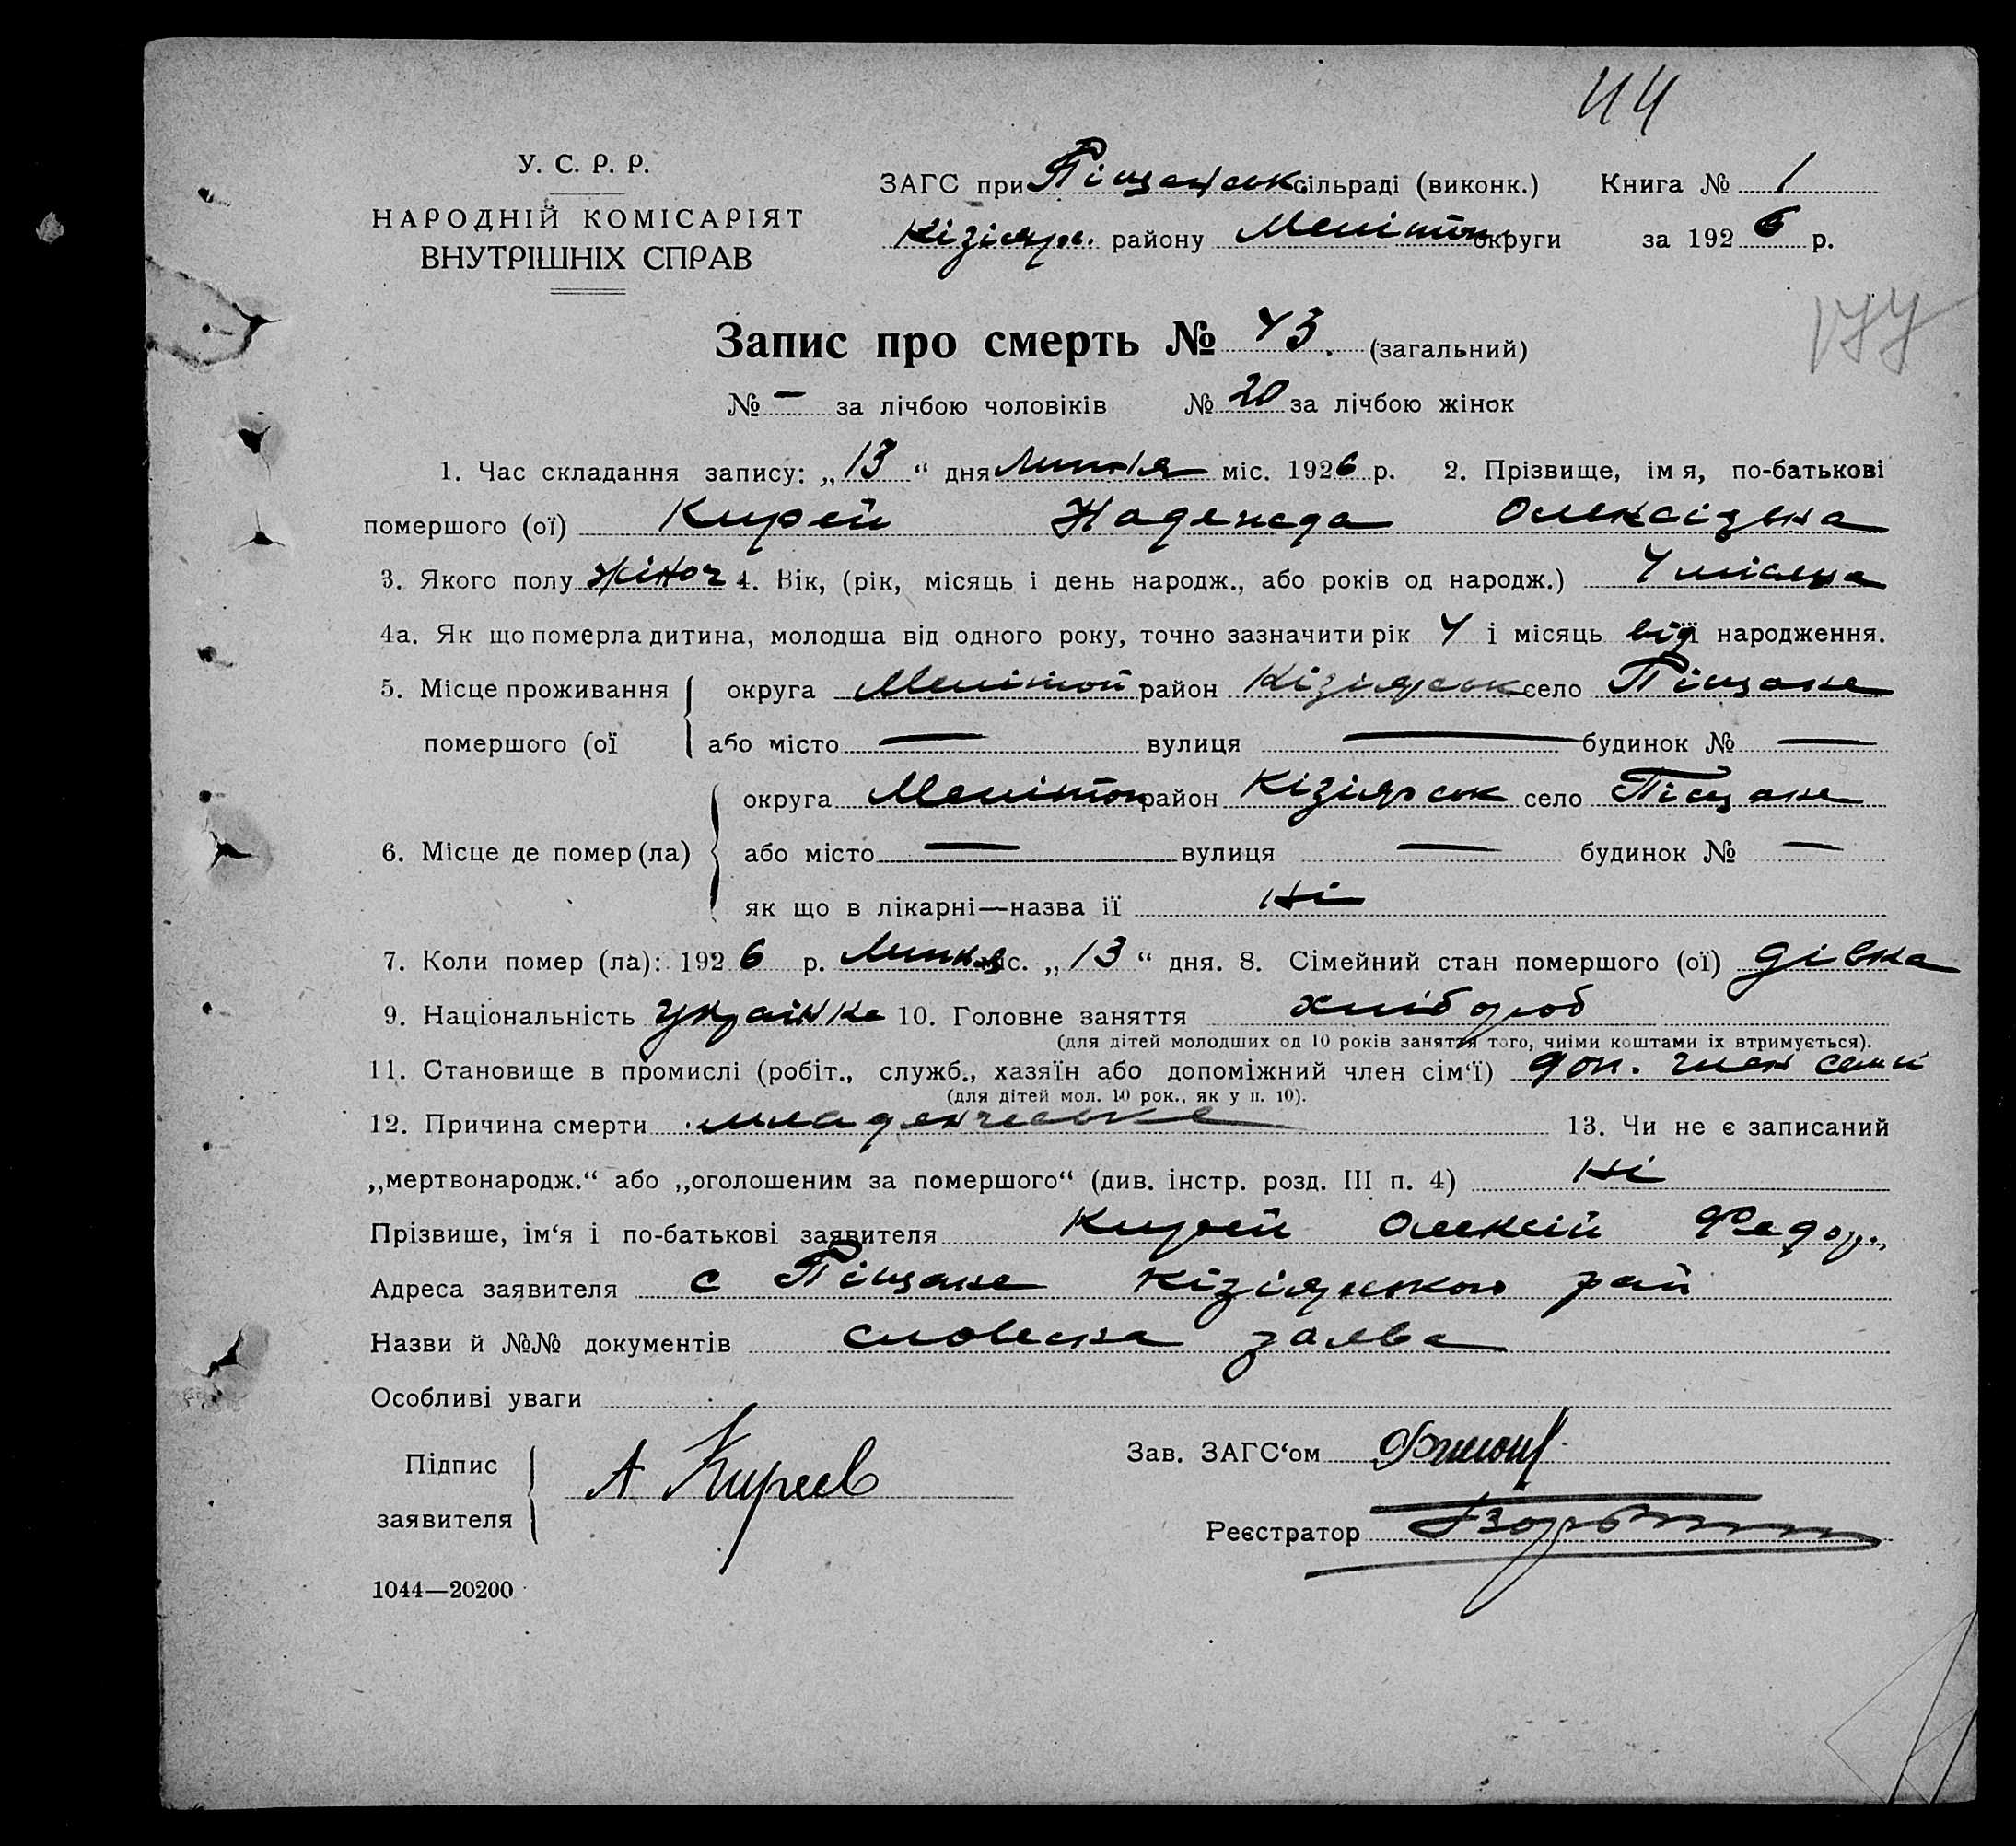 44
У. С. Р. Р.
НАРОДНІЙ КОМІСАРІЯТ
ВНУТРІШНІХ СПРАВ
ЗАГС при Піщанськ. сільраді (виконк.) Книга № 1
Кізіярс. району Мелітоп округи за 1926 р.
177
Запис про смерть № 43. (загальний)
№ — за лічбою чоловіків № 20 за лічбою жінок
1. Час складання запису: „13“ дня липня міс. 1926 р. 2. Прізвище, імя, по-батькові
помершого (ої) Кирей Надежда Олексієвна
3. Якого полу жіноч 4. Вік, (рік, місяць і день народж., або років од народж.) 4 місяца
4а. Як що померла дитина, молодша від одного року, точно зазначити рік 4 і місяць від її народження.
5. Місце проживання помершого (ої округа Мелітоп район Кізіярськ село Піщане
або місто — вулиця — будинок № —
6. Місце де помер (ла) округа Мелітоп район Кізіярськ село Піщане
або місто — вулиця — будинок № —
як що в лікарні—назва ії ні
7. Коли помер (ла): 1926 р. Липня міс. „13“ дня. 8. Сімейний стан помершого (ої) дівка
9. Національність українка 10. Головне заняття хлібороб
(для дітей молодших од 10 років заняття того, чиїми коштами їх втримується).
11. Становище в промислі (робіт., служб., хазяїн або допоміжний член сім‘ї) доп. член семи
(для дітей мол. 10 рок., як у п. 10).
12. Причина смерти младенческе 13. Чи не є записаний
„мертвонародж.“ або „оголошеним за помершого“ (див. інстр. розд. III п. 4) ні
Прізвише, ім‘я і по-батькові заявителя Кирей Олексій Федор.
Адреса заявителя с Піщане Кізіярського рай
Назви й №№ документів словесна заява
Особливі уваги
Підпис заявителя А Киреев
Зав. ЗАГС‘ом
Реєстратор
1044—20200